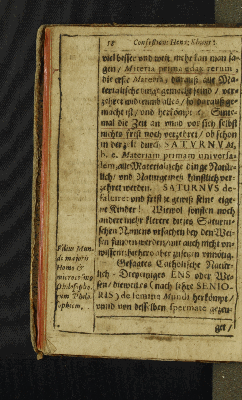 58 Confession: Henr: Khunr:
viel besser und weit mehr kan man sa-
gen / Materia prima edax rerum;
die erste Materia, darauß alle Ma-
terialische dinge gemacht sind / ver-
zehret und nimbt alles / so darauß ge-
macht ist / und herkömpt / Sinte-
mal die Zeit an und vor sich selbst
nichts frist noch verzehret / ob schon
durch SATURNUM,
h. e. Materiam primam universa-
lem, alle Materialische Dinge Natür-
lich / und Naturgemeß künstlich ver-
zehret werden. SATURNUS de-
falcirt und frist so gewiß seine eige-
ne Kinder! Wiewol sonsten noch
andere mehr klerere dieses Saturni-
schen Namens ursachen bey den Wei-
sen funden werden / mit auch nicht un-
wissent: hierhero aber zusetzen unnötig.
Gesagtes Catholische Natür-
lich-Dreyeiniges ENS oder We-
sen / (nach lehre SENIO-
RIS) de semine Mundi herkömpt /
und von desselben spermate gezeu-
get /
Filius Mun-
di majoris
Homo &
microcosmo
Philosopho-
rum Philo-
sophicus.